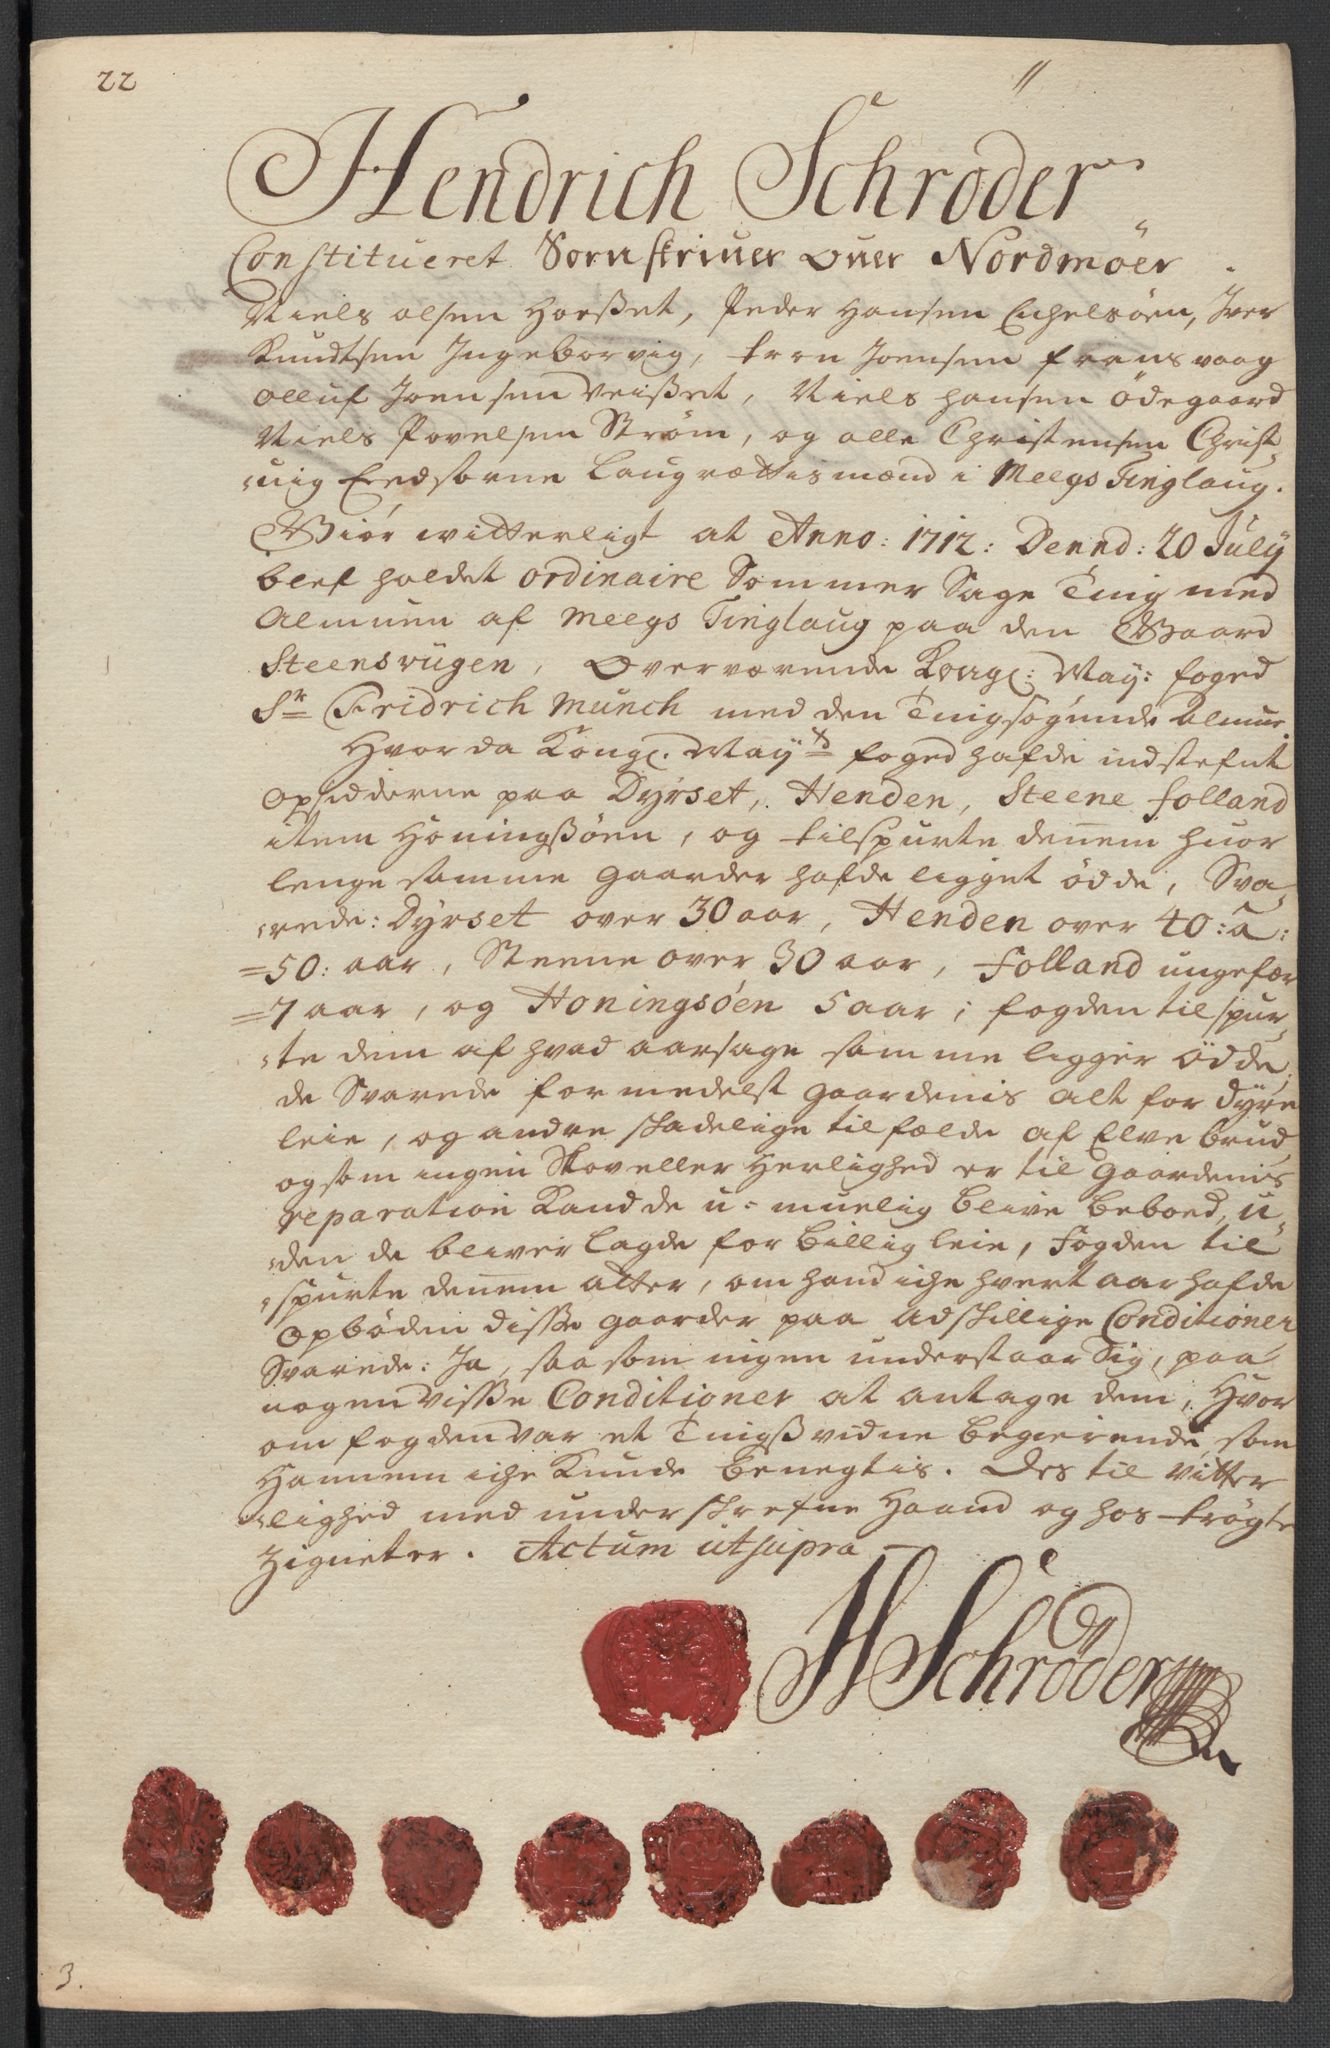 22
11
Hendrich Schrøder
Constitueret Sornskriuer ouer Nordmöer.
Niels olsen Horßet, Peder Hansen Eichelsöen, Iver
Knudtsen Ingeborvig, tron Joensen fransvaag
olluf Joensen Veißet, Niels hansen ödegaard
Niels Povelsen Ström, og olle Christensen Christ-
-uig Eedsorne Laugrættismænd i Meegs Tinglaug.
Giör witterligt at Anno: 1712: Dennd: 20 July
blef holdet ordinaire Sommer Sage Ting med
Almuen af Meegs Tinglaug paa den Gaard
Steensvügen, Overværende Kongl: May: foged
Sr Fridrich Munch med den Tingsögende almue.
Hvor da Kongl. Maytz foged hafde indstefnt
Opsidderne paa Dyrset, Henden, Steene folland
item Honingßöen, og tilspurte dennem huor
lenge samme gaarder hafde ligget ödde, Sva-
-rede: Dyrset over 30 aar, Henden over 40: a:
=50: aar, Steene over 30 aar, Folland ungefær
=7 aar, og Honingsöen 5 aar; fogden tilspur-
-te dem af hvad aarsage samme ligger ödde,
de Svarede formedelst gaardenis alt for dyre
leie, og andre skadelige tilfælde af Elvebrud
og som ingen Skov eller Herlighed er til gaardenis
reparation Kand de u-muelig blive beboed, u-
-den de bliver lagde for billig leie, Fogden til
-spurte dennem atter, om hand iche hvert aar hafde
opböden disse gaarder paa adskillige Conditioner
Svarede: Ja, saasom ingen understaar Sig, paa
nogen visse Conditioner at antage dem, Hvor
om fogden var et Tingßvidne begierende, som
Hannem iche Kunde benegtis. Des til Vitter
-lighed med underskrefne Haand og hoströgte
Zigneter. Actum utsupra
HSchröder
3.